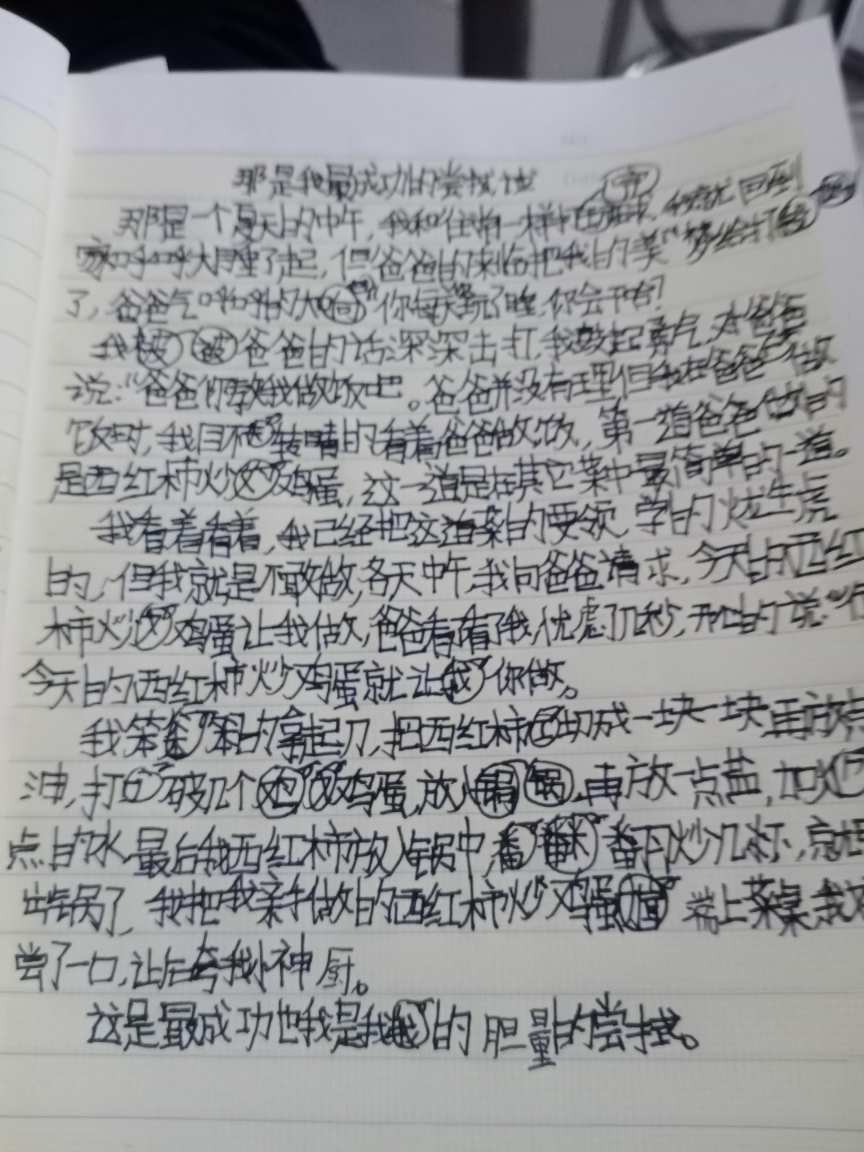 那是我最成功的尝试
那是一个夏天的中午,我和往常一样 我就回到
家呼呼大睡了起,但爸爸的来临把我的美梦给打
了,爸爸气呼呼的 你每天玩了睡,你会干啥?
我 被爸爸的话深深击打,我鼓起勇气,对爸爸
说:“爸爸你教我做饭吧。爸爸并没有理但我在爸爸做
饭时,我目不转睛的看着爸爸做饭,第一道爸爸做的
是西红柿炒鸡蛋,这一道是在其它菜中最简单的一道。
我看着看着,我已经把这道菜的要领,学的火龙生虎
的,但我就是不敢做,各天中午,我问爸爸请求,今天的西红
柿炒鸡蛋让我做,爸爸看看了我,忧虑了几秒,开口的说:“
今天的西红柿炒鸡蛋就让你做。
我笨笨的拿起刀,把西红柿切成一块一块,再放点
油,打破几个鸡蛋,放入锅,再放一点盐,加
点的水,最后我西红柿放入锅中,翻炒几,就
出锅了,我把我亲手做的西红柿炒鸡蛋 端上菜桌,我
尝了一口,让后夸我小神厨。
这是最成功也我是我的胆量的尝试。